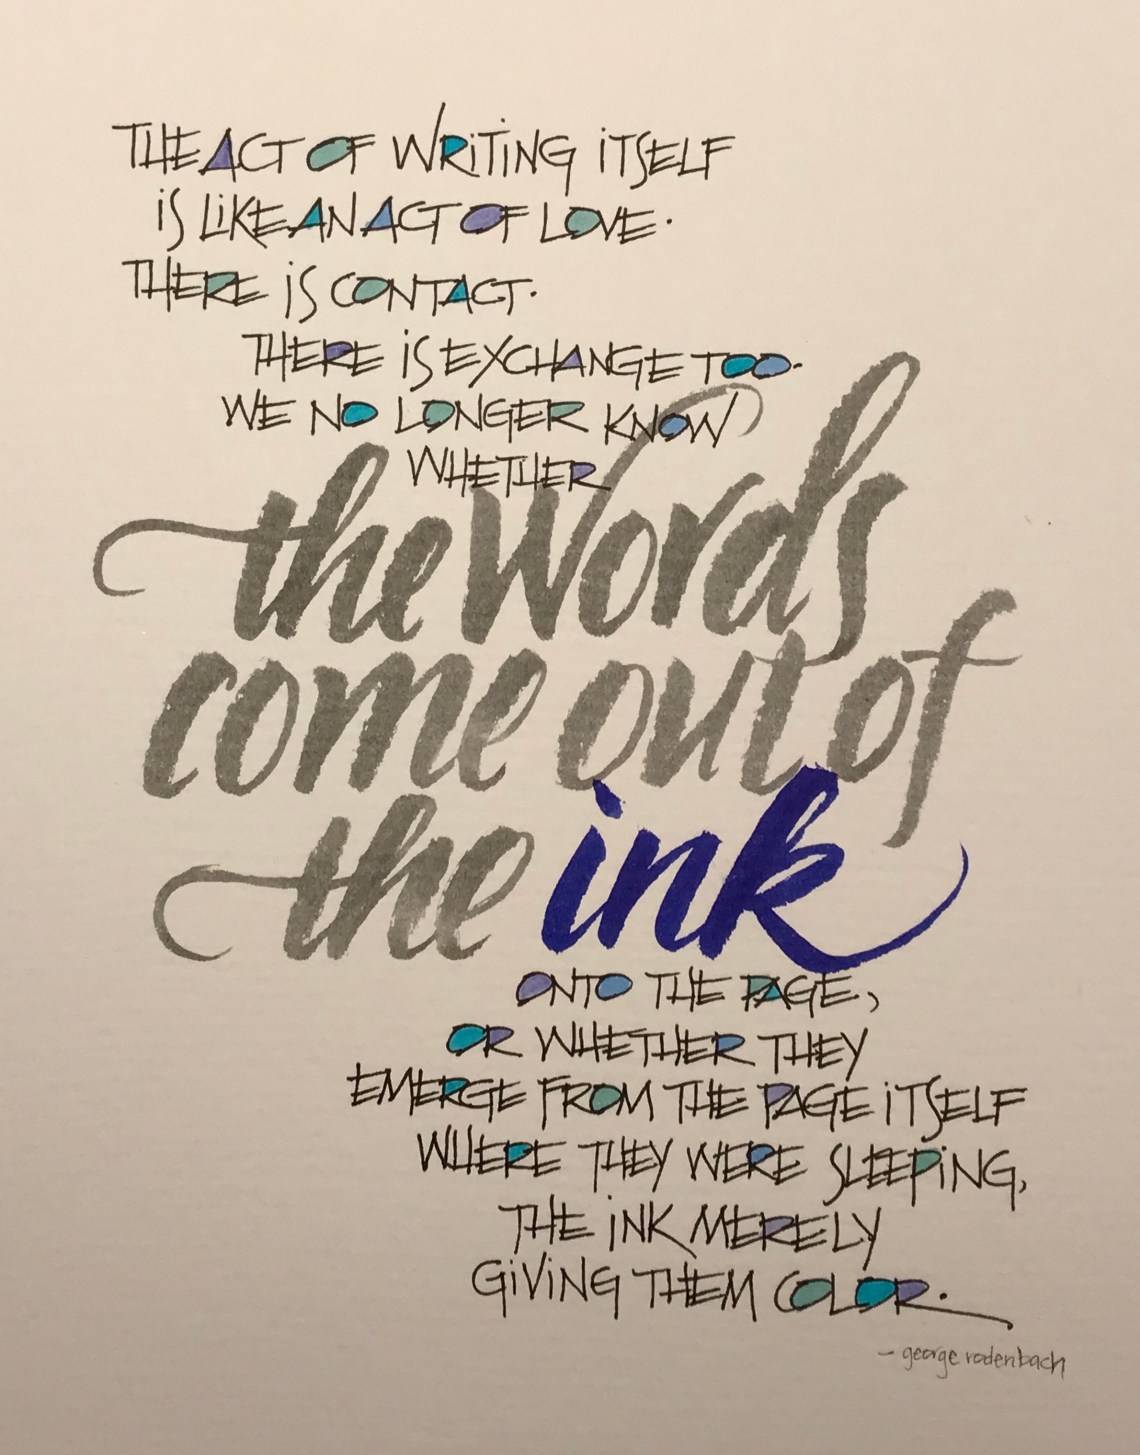 THE ACT OF WRiTiNG iTSELF
iS LiKE AN ACT OF LOVE.
THERE iS CONTACT.
THERE iS EXCHANGE TOO.
WE NO LONGER KNOW
WHETHER
the words
come out of
the ink
ONTO THE PAGE,
OR WHETHER THEY
EMERGE FROM THE PAGE iTSELF
WHERE THEY WERE SLEEPiNG,
THE iNK MERELY
GiViNG THEM COLOR.
– george rodenbach